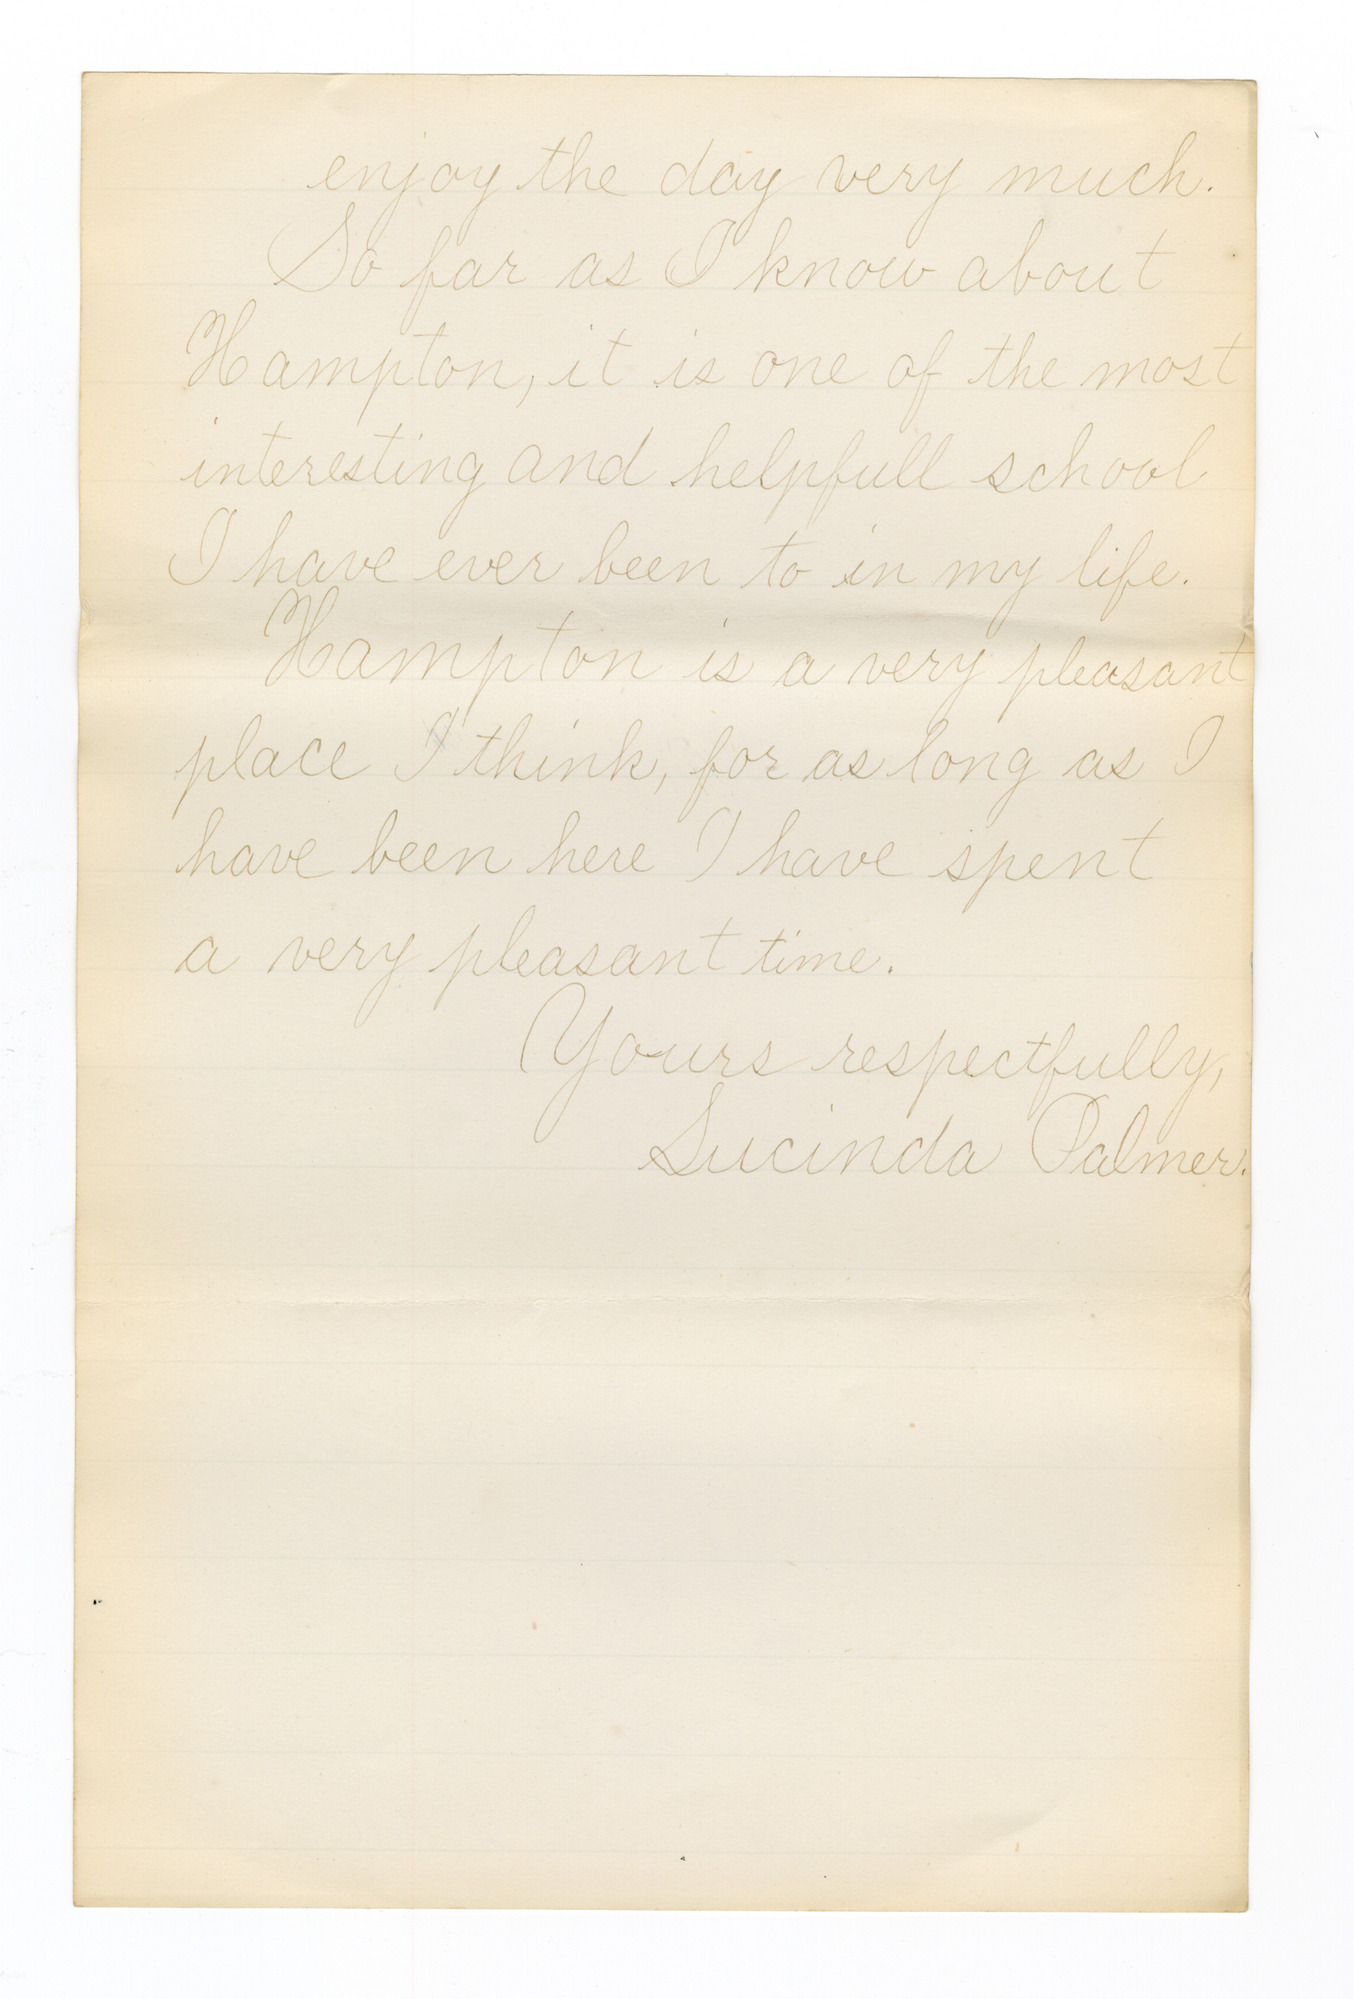 enjoy the day very much.
So far as I know about
Hampton, it is one of the most
interesting and helpfull school
I have ever been to in my life.
Hampton is a very pleasant
place I think, for as long as I
have been here I have spent
a very pleasant time.
Yours respectfully,
Lucinda Palmer.